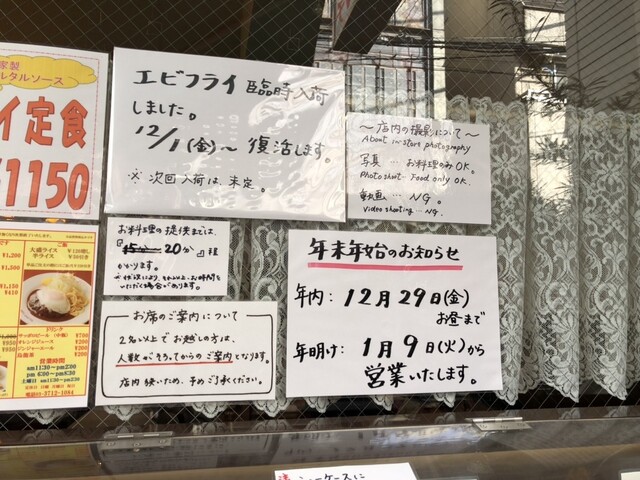 家製
ルタルソース
イ定食
¥1150
エビフライ臨時入荷
しました。
12/1(金)〜 復活します。
※ 次回入荷は、未定。
〜店内の撮影について〜
About in-store photography
写真 … お料理のみOK。
Photo shoot… Food only OK.
動画 … NG。
Video shooting … NG.
お料理の提供までは、
『15分〜20分』程
かかります。
お席のご案内について
2名以上でお越しの方は、
人数がそろってからのご案内となります。
店内狭いため、予めご了承ください。
年末年始のお知らせ
年内: 12月29日(金)
お昼まで
年明け: 1月9日(火)から
営業いたします。
¥1,200
¥1,500
¥1,150
¥410
大盛ライス
半ライス
ドリンク
オレンジジュース ¥200
ジンジャーエール ¥200
烏龍茶 ¥200
営業時間
am11:30~pm2:00
pm 6:00~pm8:30
土曜日 am11:30~pm2:30
03-3712-1084
ショーケースに